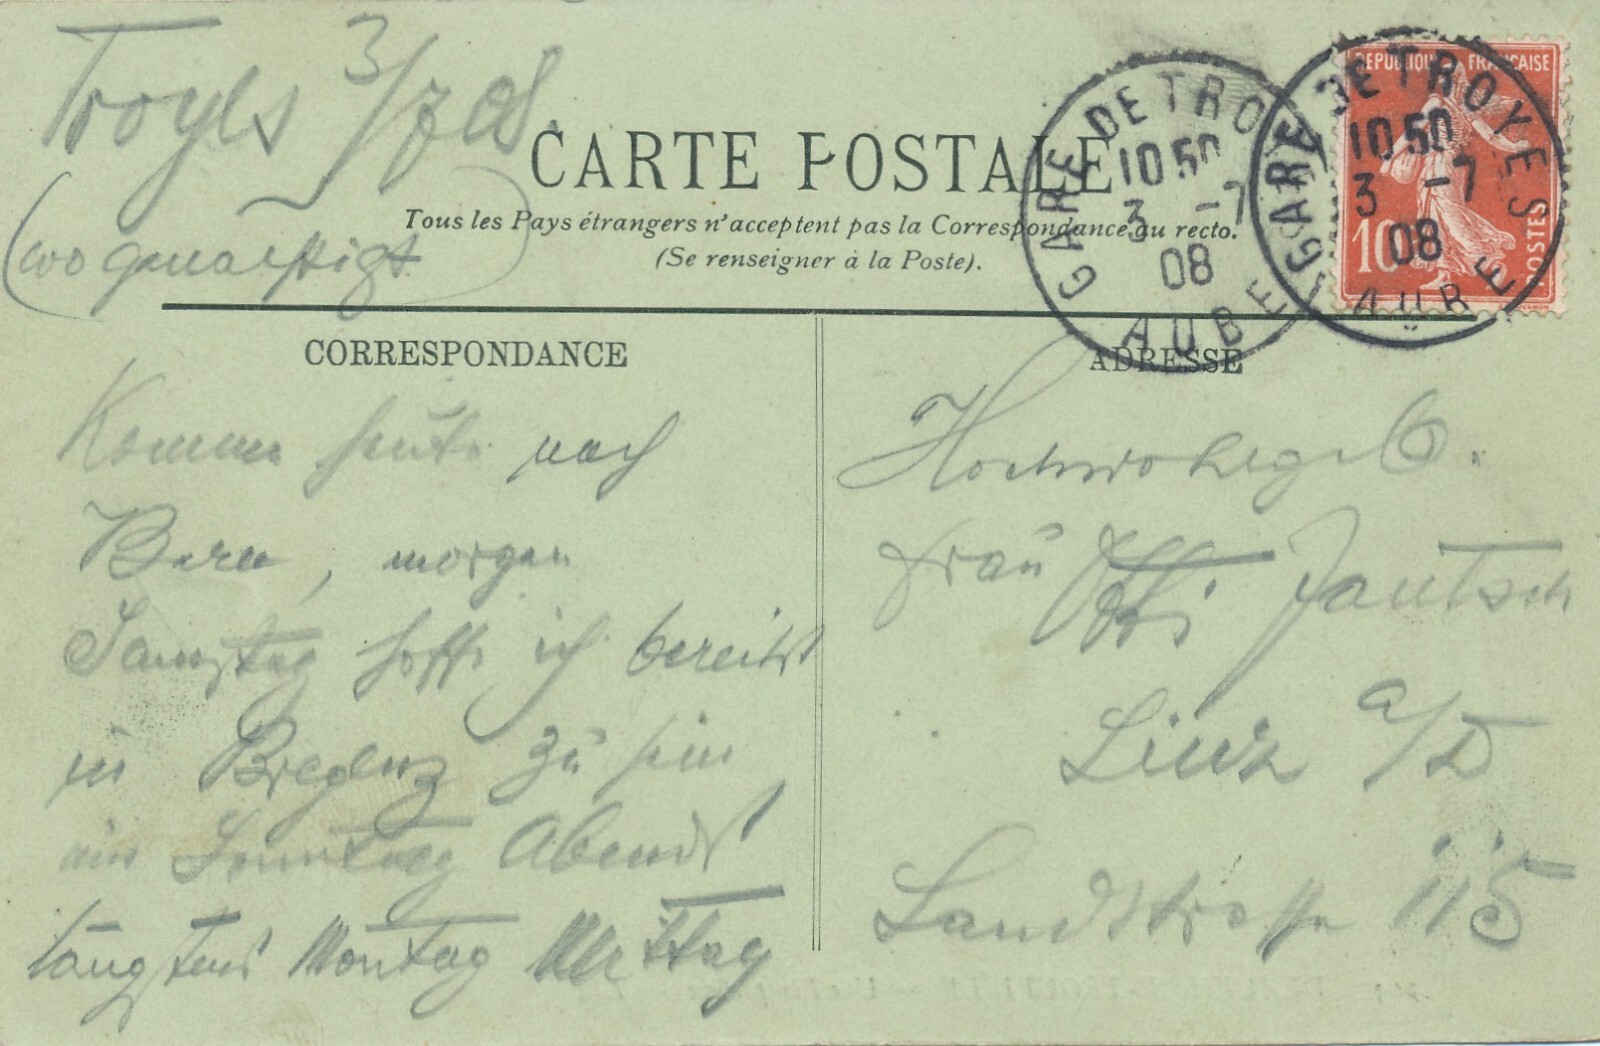 Troyes 3/7 08.
(wo genächtigt)
CARTE POSTALE
Tous les Pays étrangers n'acceptent pas la Correspondance au recto.
(Se renseigner à la Poste).
GARE DE TROYES
10 50
3 -7
08
AUBE
GARE DE TROYES
10 50
3 -7
08
AUBE
REPUBLIQUE FRANÇAISE
10
POSTES
CORRESPONDANCE
Komme heute nach
Bern, morgen
Samstag hoffe ich bereits
in Bregenz zu sein
um Sonntag Abends
längstens Montag Mittag
ADRESSE
Hochwohlgeb.
Frau Jautsch
Linz a/D
Landstrasse 115